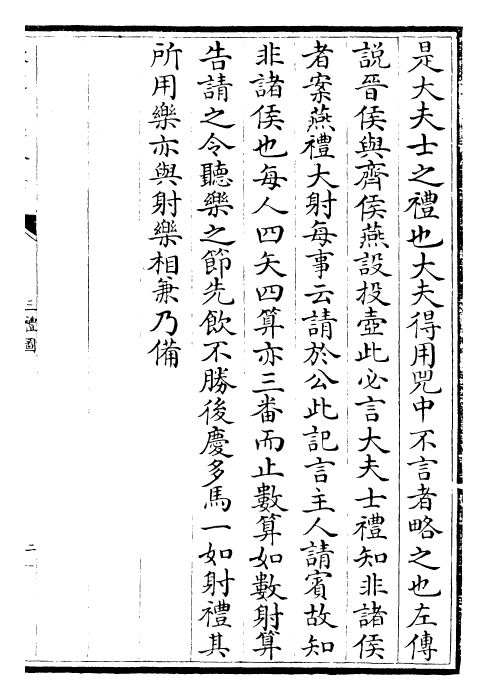 是大夫士之禮也大夫得用兕中不言者略之也左傳
説晉侯與齊侯燕設投壺此必言大夫士禮知非諸侯
者案燕禮大射每事云請於公此記言主人請賓故知
非諸侯也每人四矢四算亦三番而止數算如數射算
告請之令聽樂之節先飲不勝後慶多馬一如射禮其
所用樂亦與射樂相兼乃備
三禮圖
二